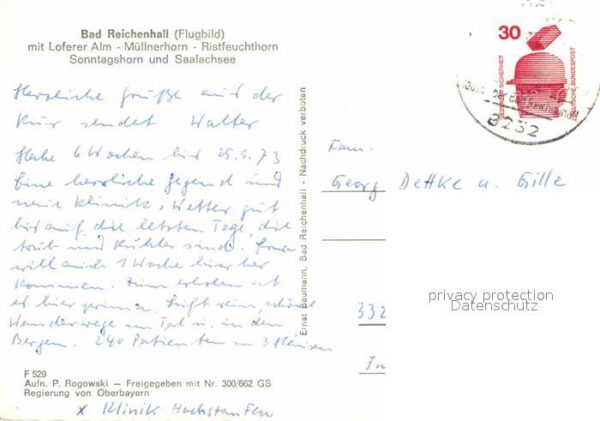 Bad Reichenhall (Flugbild)
mit Loferer Alm - Müllnerhorn - Ristfeuchthorn
Sonntagshorn und Saalachsee
Herzliche Grüße aus der
Kur sendet Walter
Habe 6 Wochen bis 25.9.73
Eine herrliche Gegend und
neue Klinik. Wetter gut
bis auf die letzten Tage, die
trüb und kühler sind.
will auch 1 Woche hier her
kommen. Zum erholen ist
es hier prima. Luft rein, schöne
Wanderwege im Tal u. in den
Bergen. 240 Patienten in 3 Häusern
F 529
Aufn. P. Rogowski — Freigegeben mit Nr. 300/662 GS
Regierung von Oberbayern
x Klinik Hochstaufen
Ernst Baumann, Bad Reichenhall - Nachdruck verboten
30
DEUTSCHE BUNDESPOST
8232
Fam.
Georg Dettke u. Gille
332
privacy protection
Datenschutz